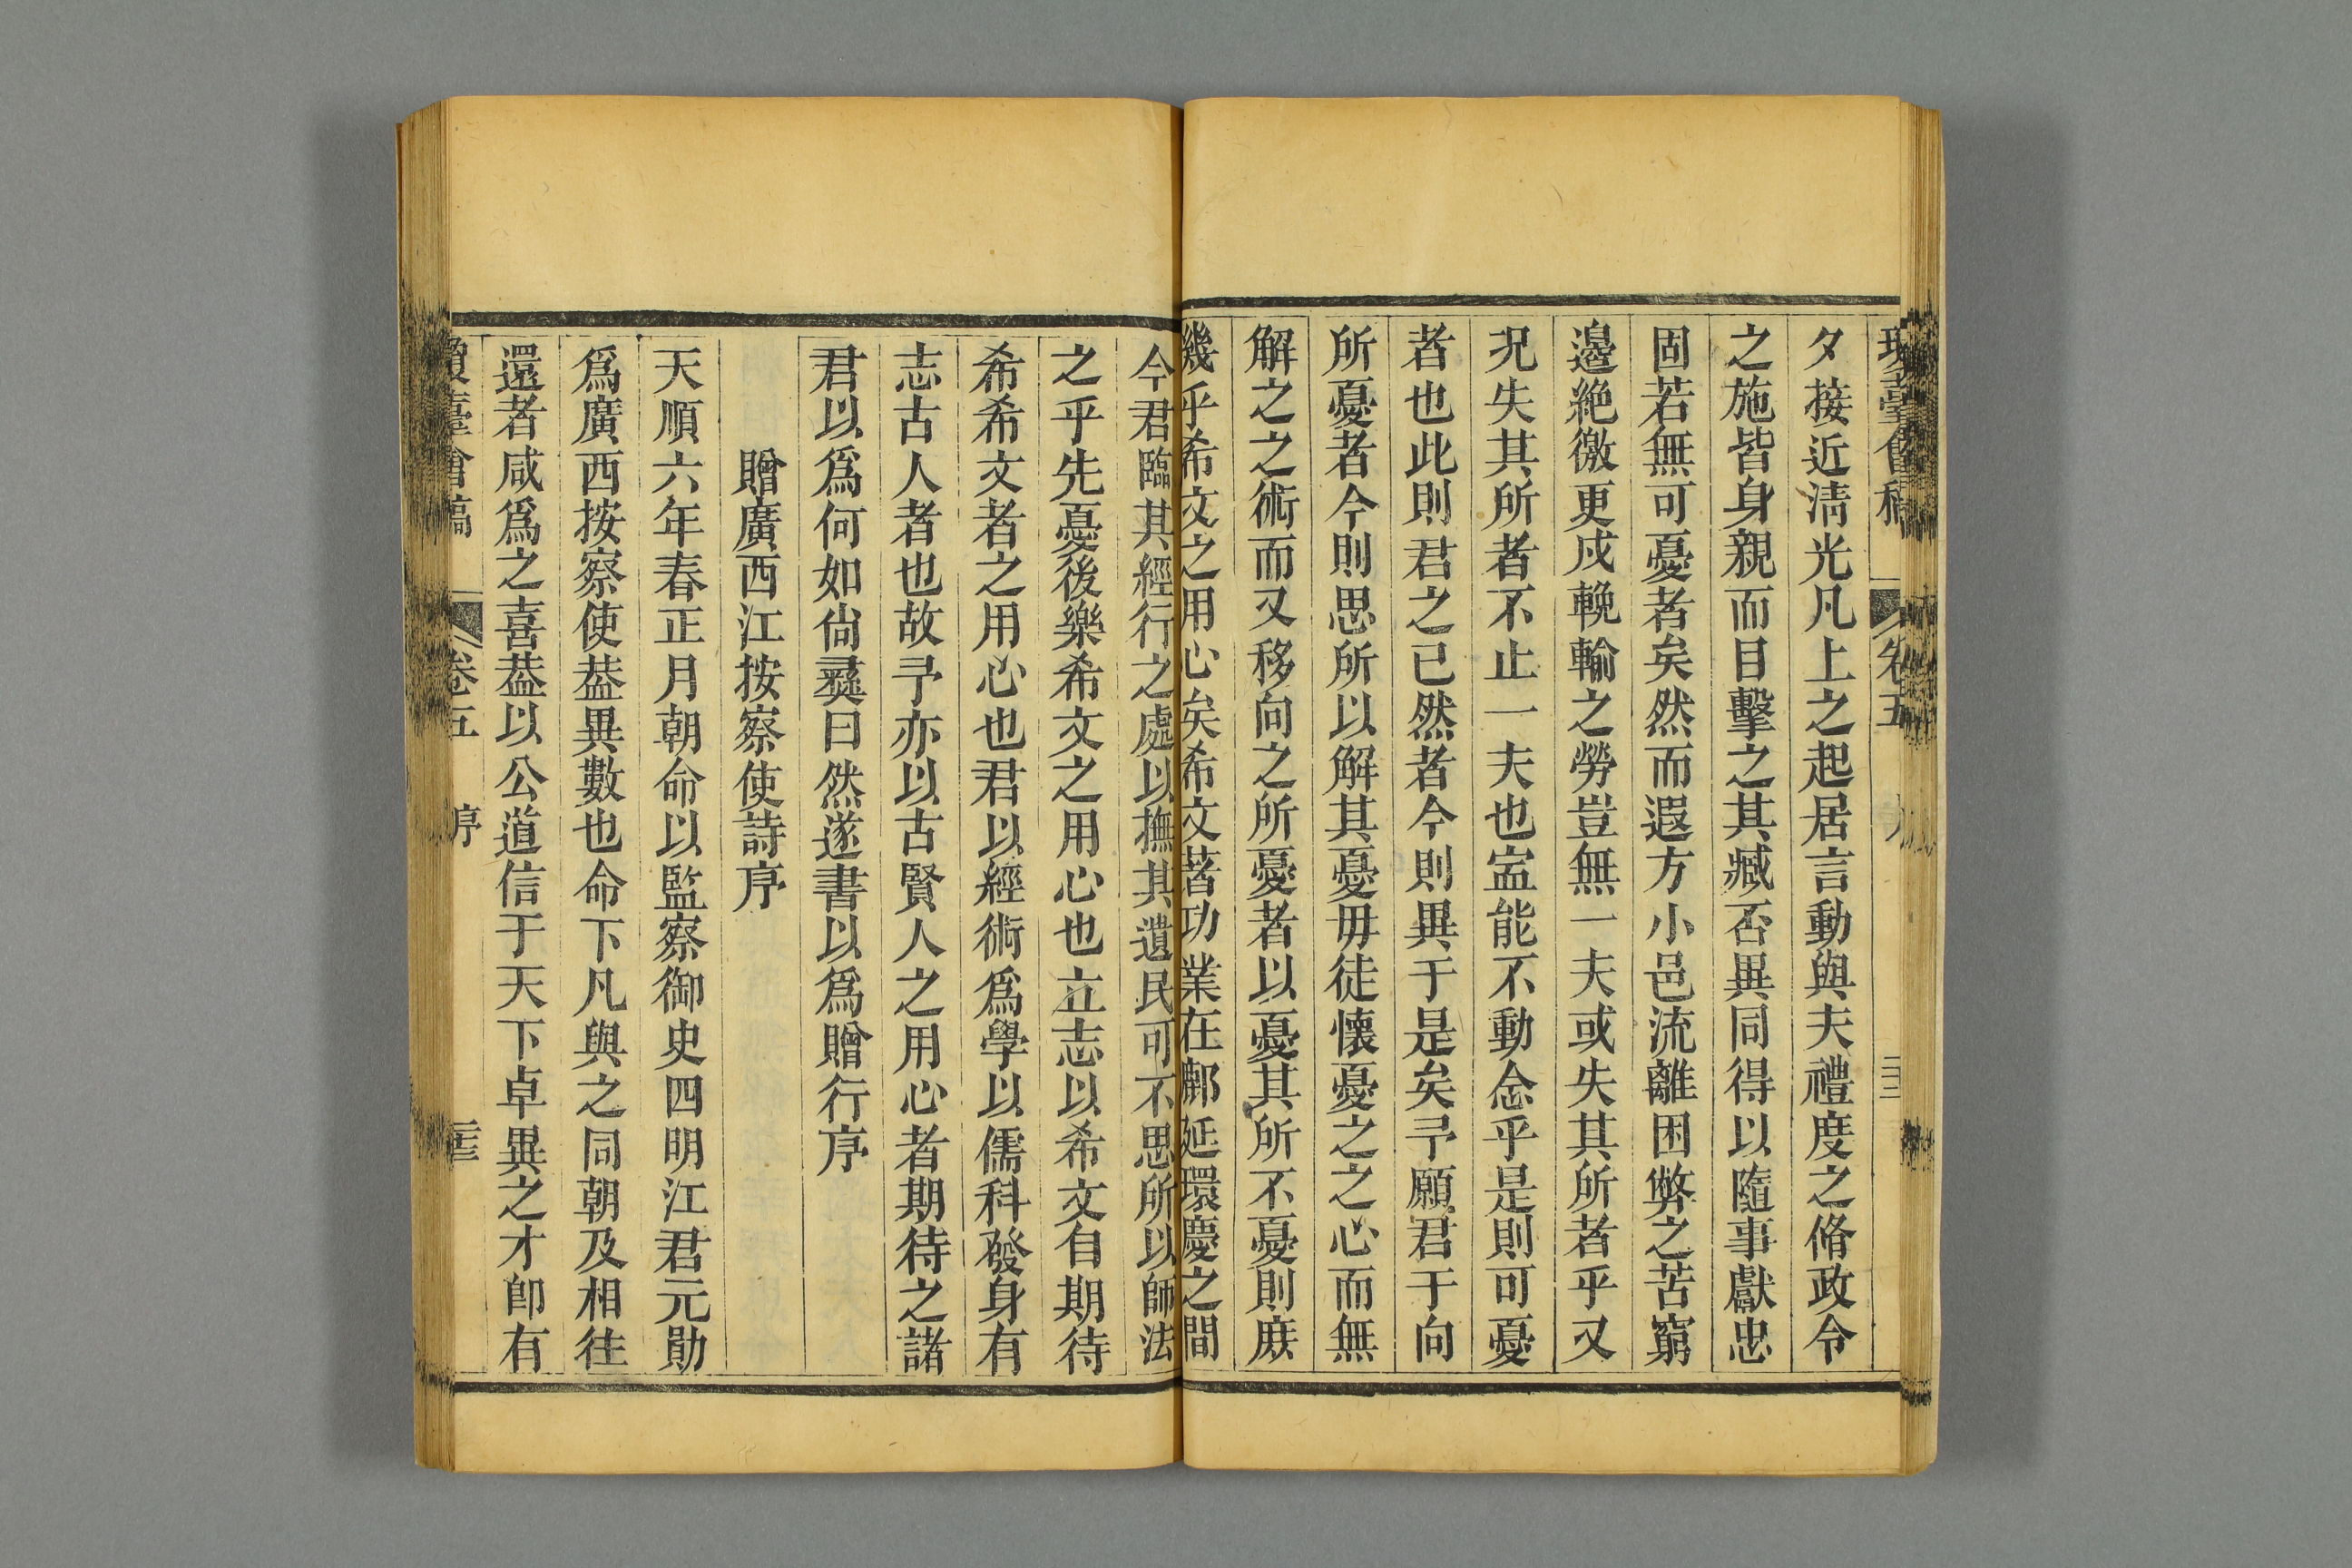 瓊臺會稿 卷五 序
夕接近淸光凡上之起居言動與夫禮度之脩政令
之施皆身親而目擊之其臧否異同得以隨事獻忠
固若無可憂者矣然而遐方小邑流離困弊之苦窮
邊絶徼更戍輓輸之勞豈無一夫或失其所者乎又
況失其所者不止一夫也寍能不動念乎是則可憂
者也此則君之已然者今則異于是矣予願君于向
所憂者今則思所以解其憂毋徒懷憂之之心而無
解之之術而又移向之所憂者以憂其所不憂則庻
幾乎希文之用心矣希文著功業在鄜延環慶之間
今君臨其經行之處以撫其遺民可不思所以師法
之乎先憂後樂希文之用心也立志以希文自期待
希希文者之用心也君以經術爲學以儒科發身有
志古人者也故予亦以古賢人之用心者期待之諸
君以爲何如尙彞曰然遂書以爲贈行序
贈廣西江按察使詩序
天順六年春正月朝命以監察御史四明江君元勛
爲廣西按察使葢異數也命下凡與之同朝及相徃
還者咸爲之喜葢以公道信于天下卓異之才卽有
瓊臺會稿 卷五 序